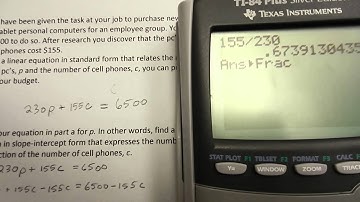 have been given the task at your job to purchase new
tablet personal computers for an employee group. Yo
00 to do so. After research you discover that the pc'
phones cost $155.
a linear equation in standard form that relates the
pc's, p and the number of cell phones, c, you can p
our budget.
230p + 155c = 6500
our equation in part a for p. In other words, find a
n in slope-intercept form that expresses the numb
ction of the number of cell phones, c.
30p + 155c = 6500
+ 155c - 155c = 6500 - 155c
TI-84 Plus Silver
TEXAS INSTRUMENTS
155/230
.6739130435
Ans▸Frac
STAT PLOT F1 TBLSET F2 FORMAT F3 CALC
Y= WINDOW ZOOM TRACE